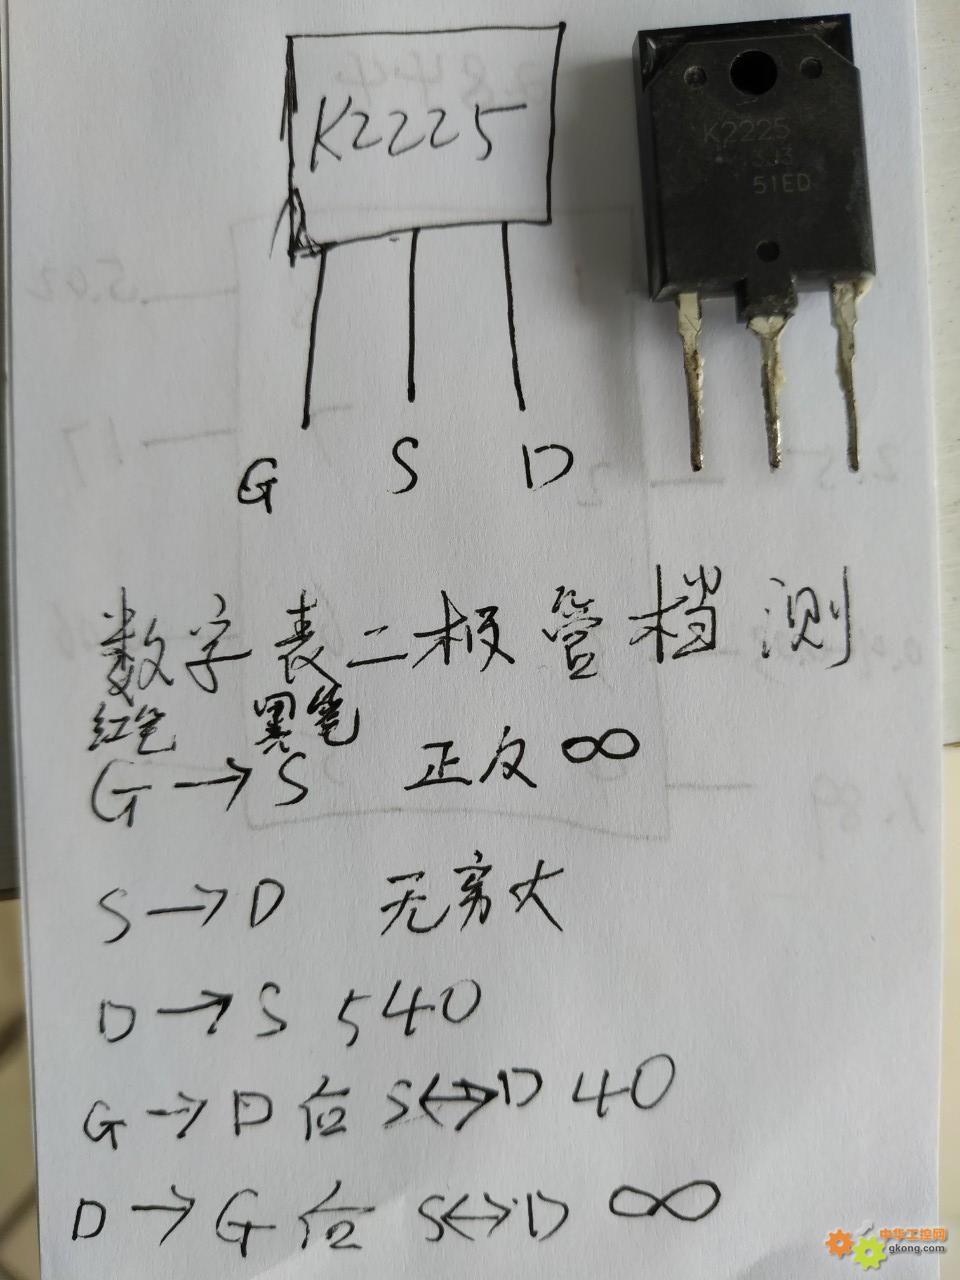 K2225
K2225
3J3
51ED
G S D
数字表二极管档测
红笔 黑笔
G→S 正反∞
S→D 无穷大
D→S 540
G→D后 S↔D 40
D→G后 S↔D ∞
5.02
17
2
2.5
1.89
中华工控网
gkong.com